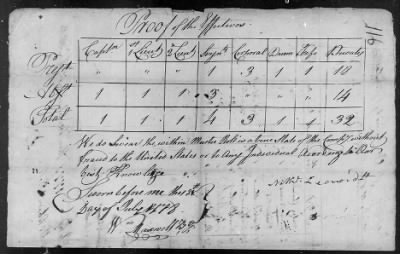 Proof of the Effectives
116
Captn 1st Lieut 2 Lieut Serjnts Corporal Drum Fife Privates
Prest " " " 1 3 1 1 18
Abst 1 1 1 3 " " " 14
Total 1 1 1 4 3 1 1 32
We do Swear the within Muster Roll is a true State of the Compy without
fraud to the United States or to Any Individual According to Our
best Knowledge
Sworn before me this
Day of July 1778
Wm Maxwell